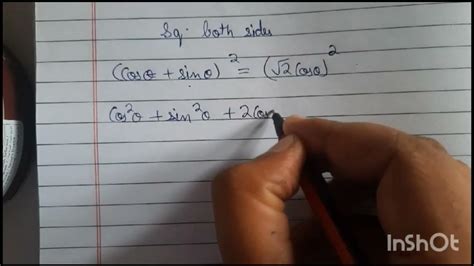 Sq. both sides
(cosθ + sinθ)² = (√2 cosθ)²
cos²θ + sin²θ + 2cos
InShOt